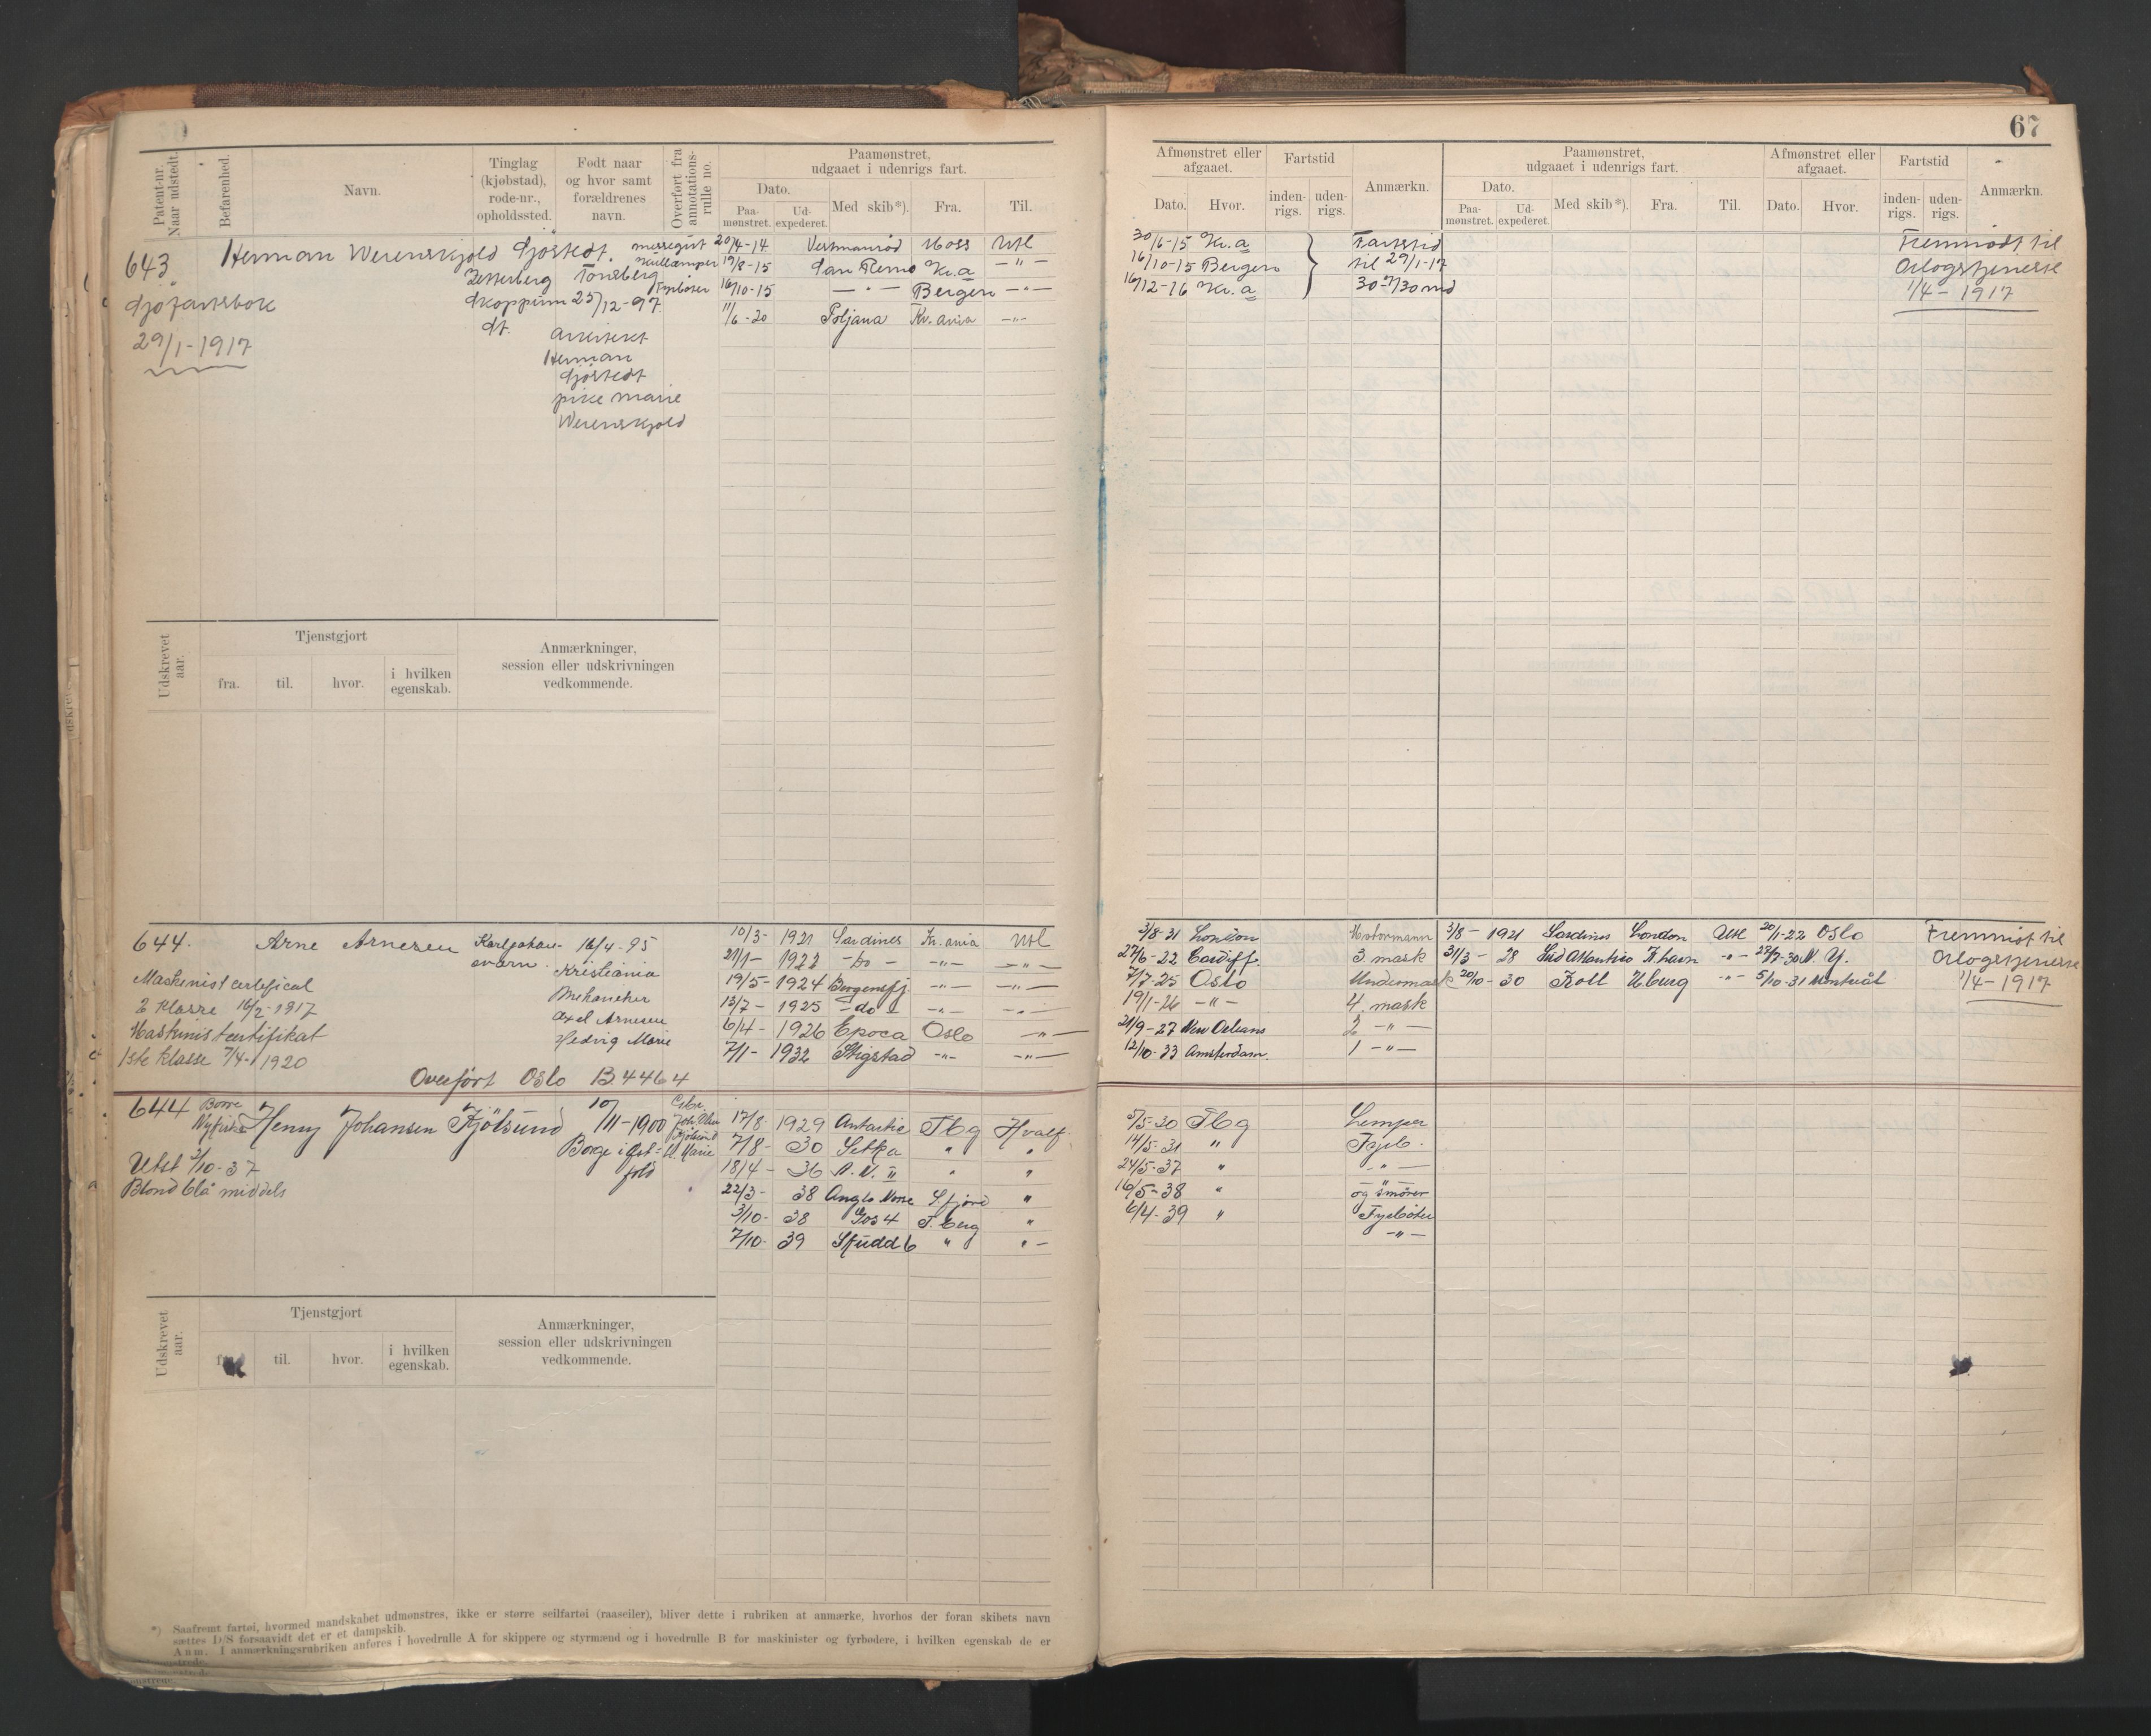 67
Patent-nr. Naar udstedt.
Befarenhed.
Navn.
Tinglag (kjøbstad), rode-nr., opholdssted.
Født naar og hvor samt forældrenes navn.
Overført fra annotations-rulle no.
Paamønstret, udgaaet i udenrigs fart.
Dato.
Paa-mønstret.
Ud-expederet.
Med skib*).
Fra.
Til.
Afmønstret eller afgaaet.
Dato.
Hvor.
Fartstid
inden-rigs.
uden-rigs.
Anmærkn.
Paamønstret, udgaaet i udenrigs fart.
Dato.
Paa-mønstret.
Ud-expederet.
Med skib*).
Fra.
Til.
Afmønstret eller afgaaet.
Dato.
Hvor.
Fartstid
inden-rigs.
uden-rigs.
Anmærkn.
643
Herman Werenskjold Sjøstedt.
Sjøfartsbok
29/1-1917
Zetterberg
Skoppum
St.
Tønsberg
25/12-97
Herman
Sjöstedt
pike Marie
Werenskjold
20/4-14 Moss Utl
19/8-15 San Remo Kr.a -"-
16/10-15 -"- Bergen -"-
11/6-20 Poljana Kr.ania -"-
30/6-15 Kr.a
16/10-15 Bergen
16/12-16 Kr.a
Fartstid
til 29/1-17
Fremmødt til
Orlogstjeneste
1/4-1917
Udskrevet aar.
Tjenstgjort
fra.
til.
hvor.
i hvilken egenskab.
Anmærkninger, session eller udskrivningen vedkommende.
644.
Arne Arnesen
Karljohans-
værn.
16/4-95
Kristiania
Mekaniker
Axel Arnesen
Hedvig Marie
Maskinistcertificat
2 klasse 16/2-1917
Maskinistcertifikat
1ste klasse 7/4-1920
Overført Oslo B.4464
10/3- 1921 Sardines Kr.ania Utl
21/1- 1922 -do- -"- -"-
19/5- 1924 Bergensfj. -"- -"-
13/7- 1925 -do- -"- -"-
6/4- 1926 Epoca Oslo -"-
7/1- 1932 Stigstad -"- -"-
3/8-21 London Motormann
27/6-22 Cardiff. 3 mask
7/7-25 Oslo Undermask
19/1-26 -"- 4. mask
21/9-27 New Orleans 2 -"-
12/10-33 Amsterdam. 1 -"-
3/8- 1921 Sardines London Utl 20/1-22 Oslo
31/3- 28 Sud Atlantico K.havn -"- N.Y.
20/10- 30 Troll H.burg -"- 5/10-31 Montreal
Fremmødt til
Orlogstjeneste
1/4-1917
644
Borre
Henry Johansen Fjølsund
10/11-1900
Borge i Øst-
fold
Utst 2/10-37
Blond blå middels
17/8 1929 Antarctic Tbg Hvalf.
7/8- 30 Sitka " "
18/4- 36 A.N. II " "
22/3- 38 Anglo Norse S.fjord "
3/10- 38 Gos 4 T.berg "
7/10- 39 Skudd 6 " "-
5/5-30 Tbg Lemper
14/5-31 " Fyrb.
24/5-37 " -"-
16/5-38 " og smører
6/4-39 " Fyrbøter
-"-
Udskrevet aar.
Tjenstgjort
til.
hvor.
i hvilken egenskab.
Anmærkninger, session eller udskrivningen vedkommende.
*) Saafremt fartøi, hvormed mandskabet udmønstres, ikke er større seilfartøi (raaseiler), bliver dette i rubriken at anmærke, hvorhos der foran skibets navn
sættes D/S forsaavidt det er et dampskib.
Anm. I anmærkningsrubriken anføres i hovedrulle A for skippere og styrmænd og i hovedrulle B for maskinister og fyrbødere, i hvilken egenskab de er